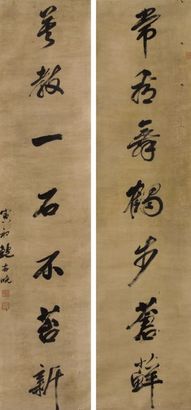 常舞鶴步蒼蘚
莫教一石不苔新
寅初鮑